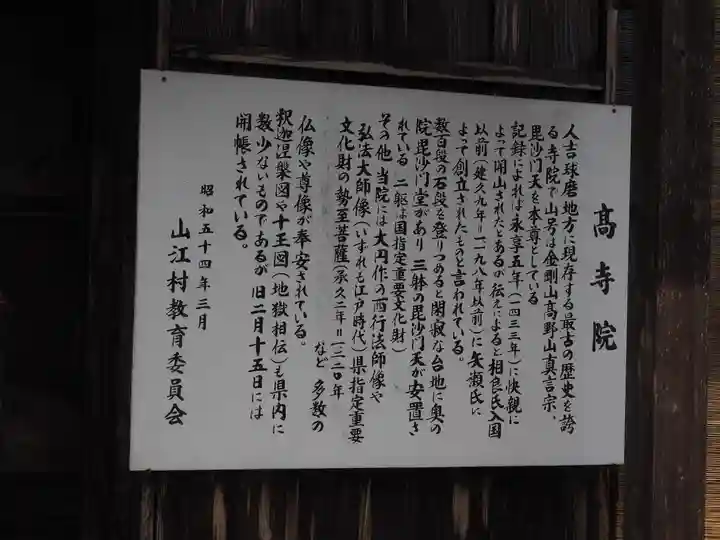 高寺院
人吉球磨地方に現存する最古の歴史を誇
る寺院で山号は金剛山高野山真言宗、
毘沙門天を本尊としている
記録によれば永享五年(一四三三年)に快親に
よって開山されたとあるが伝えによると相良氏入国
以前(建久九年=一一九八年以前)に矢瀬氏に
よって創立されたものと言われている。
数百段の石段を登りつめると閑寂な台地に奥の
院毘沙門堂があり三躰の毘沙門天が安置さ
れている 二躯は国指定重要文化財)
その他 当院には大円作の西行法師像や
弘法大師像(いずれも江戸時代)県指定重要
文化財の勢至菩薩(承久二年=一二二〇年
など 多数の
仏像や尊像が奉安されている。
釈迦涅槃図や十王図(地獄相伝)も県内に
数少ないものであるが 旧二月十五日には
開帳されている。
昭和五十四年三月
山江村教育委員会